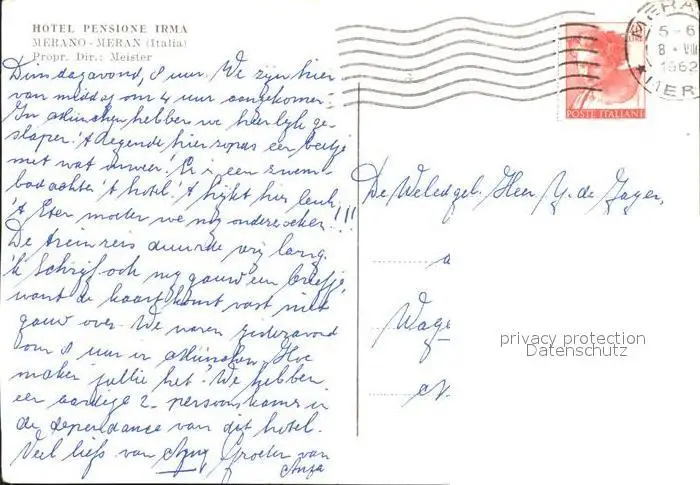 HOTEL PENSIONE IRMA
MERANO - MERAN (Italia)
Propr. Dir.: Meister
Dinsdagavond, 8 uur. We zijn hier
van middag om 4 uur aangekomen.
In München hebben we heerlijk ge-
slapen. 't Regende hier zopas een beetje
met wat onweer. Er is een zwem-
bad achter 't hotel. 't lijkt hier leuk,
't Eten moeten we nog onderzoeken!!!
De treinreis duurde vrij lang.
'k Schrijf ook nog gauw een briefje,
want de kaart komt vast niet
gauw over. We waren gisteravond
om 8 uur in München. Hoe
maken jullie het? We hebben
een aardige 2-persoonskamer in
de dependance van dit hotel.
Veel liefs van Groeten van
POSTE ITALIANE
5-6
8 · VIII
1962
MER
De Weledgeb. Heer J. de Jager,
a
Wage
N.
privacy protection
Datenschutz